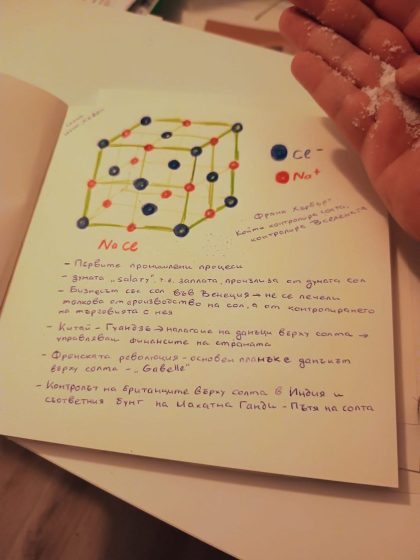 Cl⁻
Na⁺
Франк Хърбърт
Който контролира солта,
контролира Вселената
NaCl
- Първите промишлени процеси
- думата „salary", т.е. заплата, произлиза от думата сол
- Бизнесът със сол във Венеция → не се печели
толкова от производство на сол, а от контролирането
на търговията с нея
- Китай - Гуандзъ → налагане на данъци върху солта →
управляват финансите на страната
- Френската революция - основен пламък е данъкът
върху солта - „Gabelle"
- Контролът на британците върху солта в Индия и
съответния бунт на Махатма Ганди - Пътя на солта